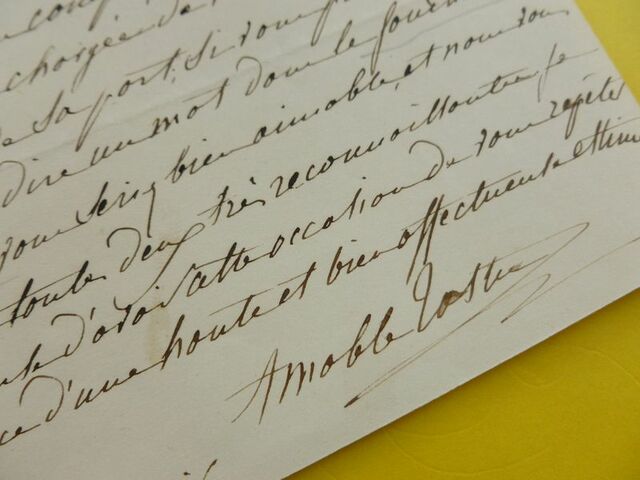 chargée de
de sa part, si vous
dire un mot dont le
vous serez bien aimable, et nous vous
toutes deux très reconnoissantes je
d'avoir cette occasion de vous répéter
d'une haute et bien affectueuse estime
Amable Tastu